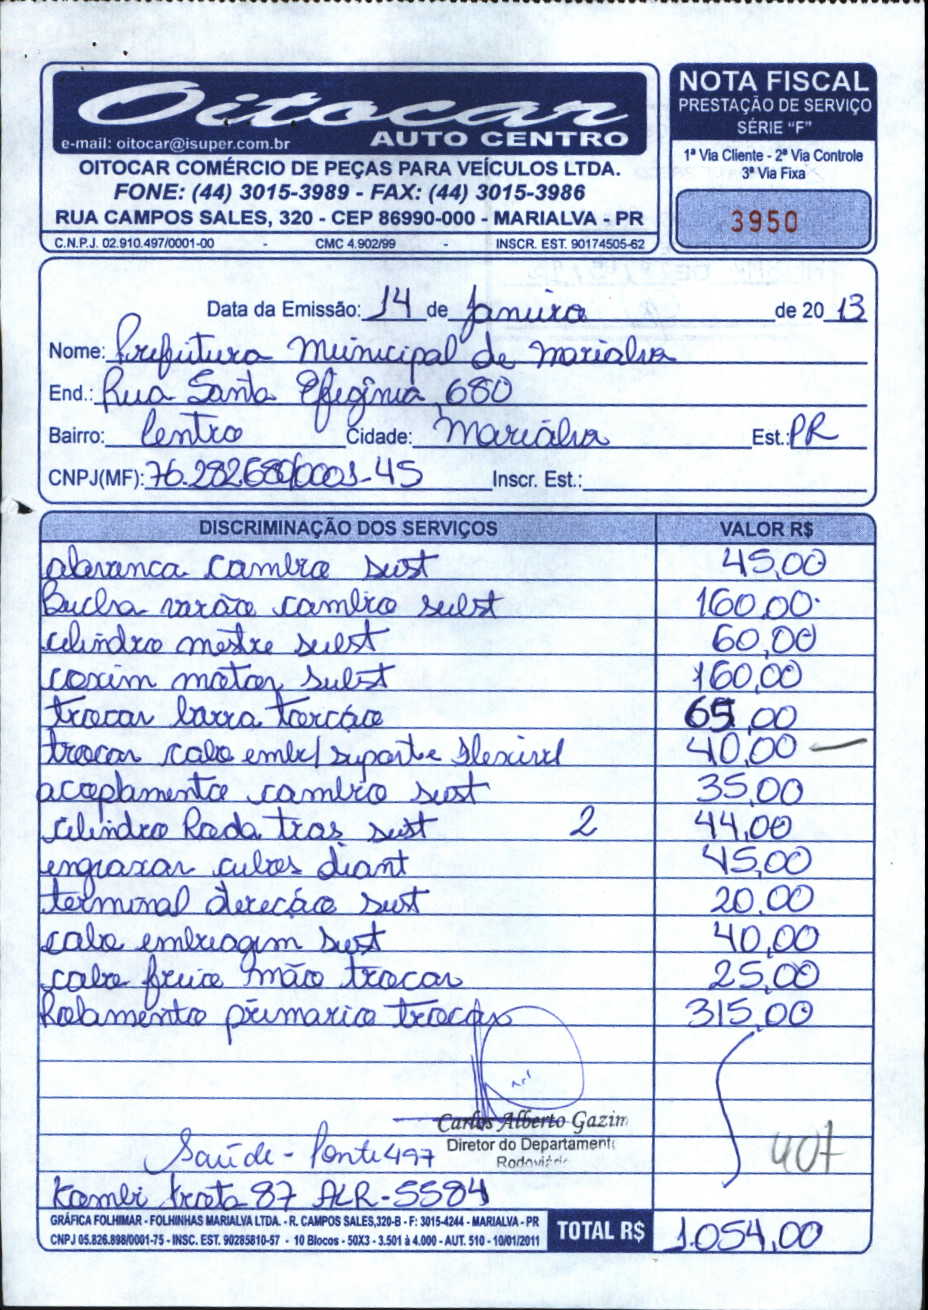 Oitocar
AUTO CENTRO
e-mail: oitocar@isuper.com.br
OITOCAR COMÉRCIO DE PEÇAS PARA VEÍCULOS LTDA.
FONE: (44) 3015-3989 - FAX: (44) 3015-3986
RUA CAMPOS SALES, 320 - CEP 86990-000 - MARIALVA - PR
C.N.P.J. 02.910.497/0001-00 - CMC 4.902/99 - INSCR. EST. 90174505-62
NOTA FISCAL
PRESTAÇÃO DE SERVIÇO
SÉRIE "F"
1ª Via Cliente - 2ª Via Controle
3ª Via Fixa
3950
Data da Emissão: 14 de Janeiro de 20 13
Nome: Prefeitura Municipal de Marialva
End.: Rua Santa Efigênia, 680
Bairro: Centro Cidade: Marialva Est.: PR
CNPJ(MF): 76.282680/0001-45 Inscr. Est.:
DISCRIMINAÇÃO DOS SERVIÇOS VALOR R$
alavanca cambio sust 45,00
Bucha varão cambio subst 160,00
cilindro mestre subst 60,00
coxim motor subst 160,00
trocar barra torcão 65,00
trocar cabo emb/suporte flexivel 40,00
acoplamento cambio sust 35,00
cilindro Roda tras sust 2 44,00
engraxar cubos diant 45,00
terminal direcão sust 20,00
cabo embreagem sust 40,00
cabo freio mão trocar 25,00
Rolamento primario trocar 315,00
Carlos Alberto Gazim
Diretor do Departament
Rodoviári
Saúde - Fonte 497
407
Kombi prata 87 ALR-5584
GRÁFICA FOLHIMAR - FOLHINHAS MARIALVA LTDA. - R. CAMPOS SALES,320-B - F: 3015-4244 - MARIALVA - PR
CNPJ 05.826.898/0001-75 - INSC. EST. 90285810-57 - 10 Blocos - 50X3 - 3.501 à 4.000 - AUT. 510 - 10/01/2011
TOTAL R$ 1.054,00